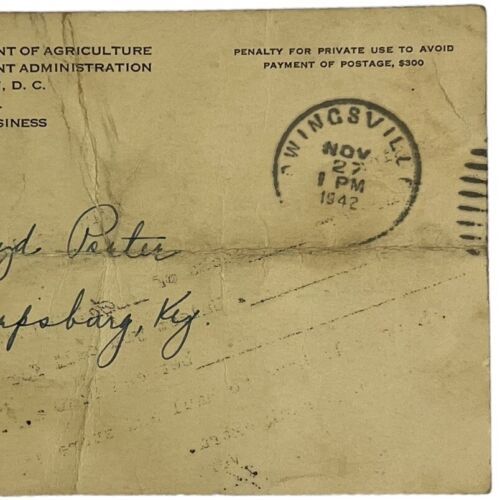 NT OF AGRICULTURE
NT ADMINISTRATION
, D. C.
SINESS
PENALTY FOR PRIVATE USE TO AVOID
PAYMENT OF POSTAGE, $300
OWINGSVILLE
NOV
27
1 PM
1942
yd Porter
rpsburg, Ky.